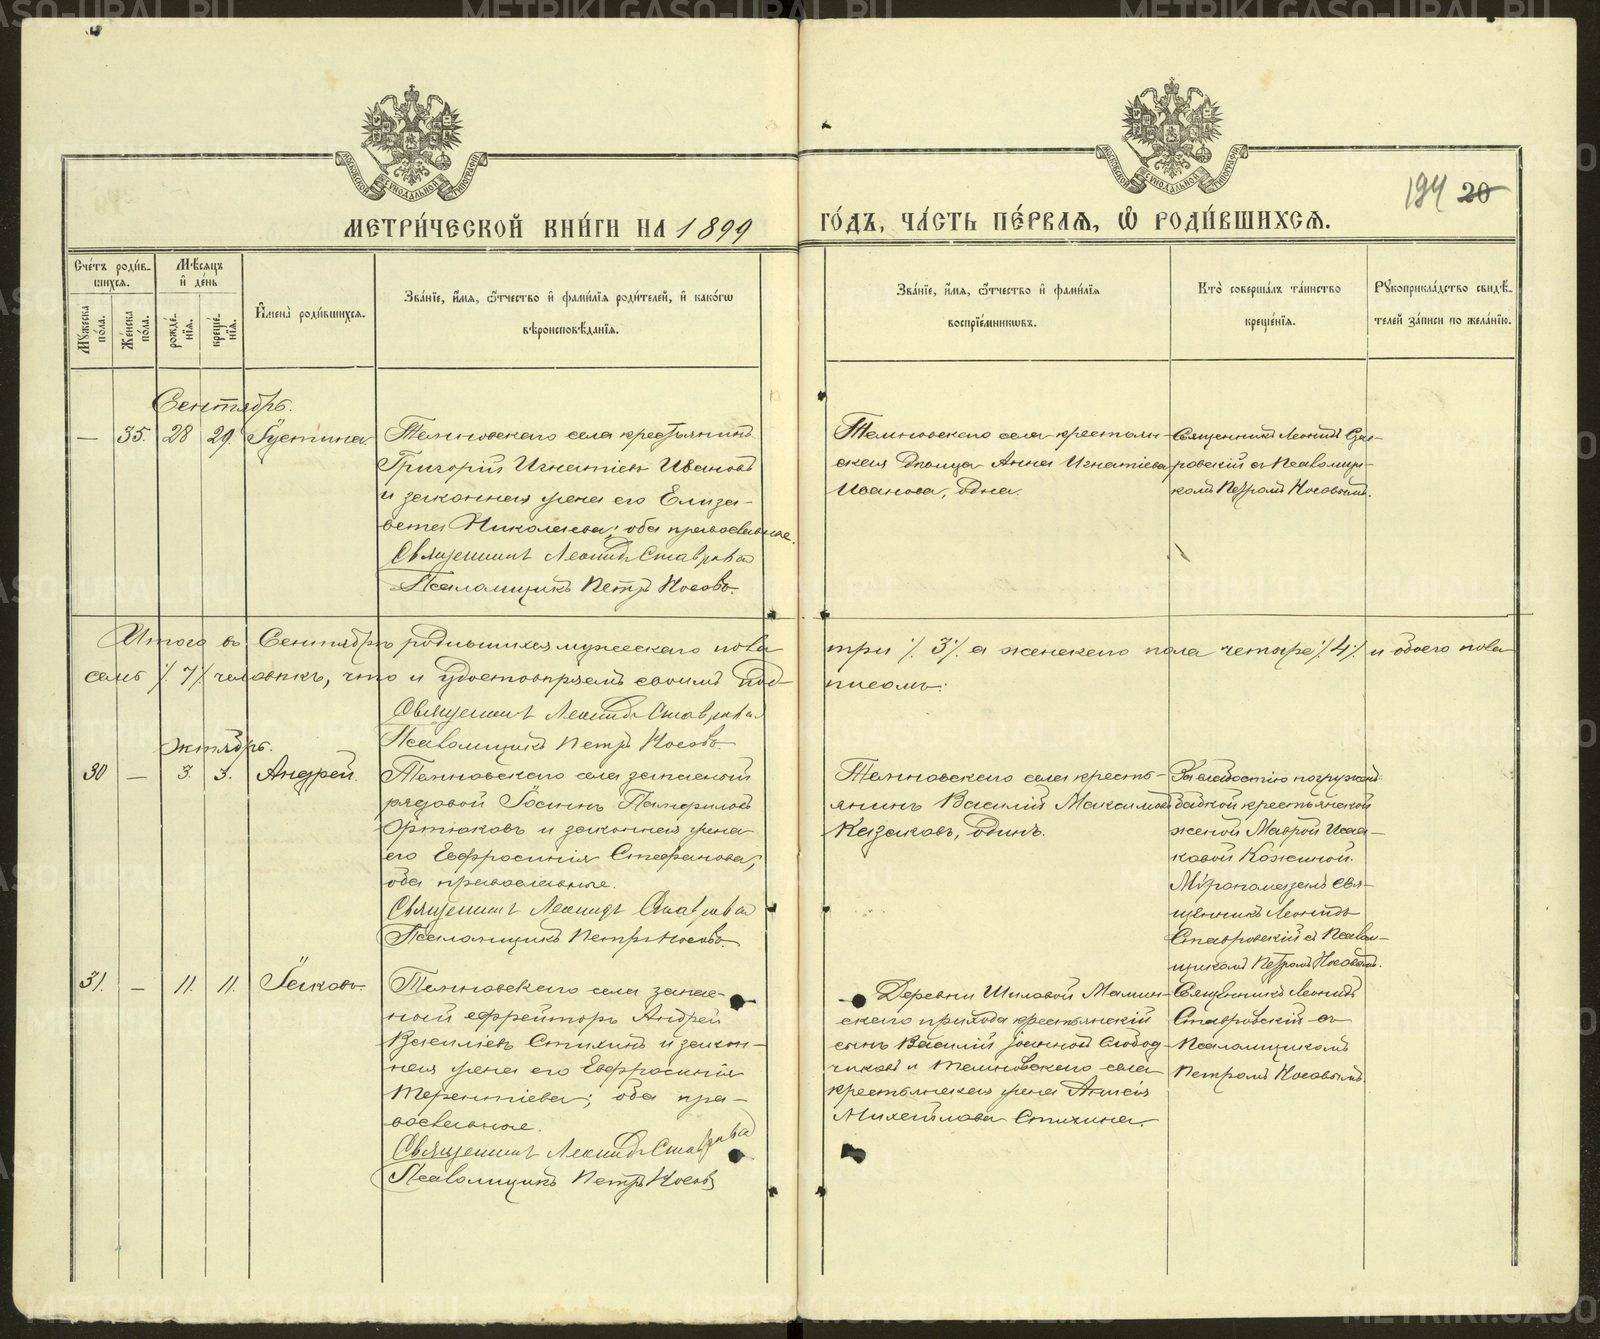 METRIKI.GASO-URAL.RU
МОСКОВСКОЙ СѴНОДАЛЬНОЙ ТИПОГРАФІИ
МОСКОВСКОЙ СѴНОДАЛЬНОЙ ТИПОГРАФІИ
194 20
МЕТРИ́ЧЕСКОЙ КНИ́ГИ НА 1899 ГО́ДЪ, ЧА́СТЬ ПЕ́РВАѦ, Ѡ҆ РОДИ́ВШИХСѦ.
Сче́тъ роди́в-
шихсѧ.
Мѣ́сѧцъ
и҆ де́нь
Мꙋ́жеска
по́ла.
Же́нска
по́ла.
рожде́-
нїѧ.
креще́-
нїѧ.
И҆мена̀ роди́вшихсѧ.
Зва́нїе, и҆́мѧ, ѻ҆́тчество и҆ фами́лїѧ роди́телей, и҆ како́гѡ
вѣроисповѣ́данїѧ.
Зва́нїе, и҆́мѧ, ѻ҆́тчество и҆ фами́лїѧ
воспрїе́мникѡвъ.
Кто̀ соверша́лъ та́инство
креще́нїѧ.
Рꙋкоприкла́дство свидѣ́-
телей за́писи по жела́нїю.
Сентябрь.
— 35. 28 29. Іустина.
Темновскаго села крестьянинъ
Григорій Игнатіевъ Ивановъ
и законная жена его Елиза-
вета Николаева; оба православные.
Священникъ Леонидъ Ставровскій
Псаломщикъ Петръ Носовъ.
Темновскаго села крестьян-
ская дѣвица Анна Игнатіева
Иванова, одна.
Священникъ Леонидъ Став-
ровскій съ Псаломщи-
комъ Петромъ Носовымъ.
Итого въ Сентябрѣ родившихся мужескаго пола три /. 3 /. а женскаго пола четыре /. 4 /. и обоего пола
семь /. 7 /. человѣкъ, что и удостовѣряемъ своимъ под- писомъ:
Священникъ Леонидъ Ставровскій
Псаломщикъ Петръ Носовъ.
Октябрь.
30 — 3. 3. Андрей.
Темновскаго села запасный
рядовой Іосифъ Памфиловъ
Ортюковъ и законная жена
его Евфросинія Стефанова;
оба православные.
Священникъ Леонидъ Ставровскій
Псаломщикъ Петръ Носовъ.
Темновскаго села кресть-
янинъ Василій Максимовъ
Казаковъ, одинъ.
За слабостію погружен
бабкой крестьянской
женой Маврой Исаа-
ковой Кожиной.
Мѵропомазалъ Свя-
щенникъ Леонидъ
Ставровскій съ Псалом-
щикомъ Петромъ Носовымъ.
31. — 11. 11. Іаковъ.
Темновскаго села запас-
ный ефрейторъ Андрей
Василіевъ Стихинъ и закон-
ная жена его Евфросинія
Терентіева; оба пра-
вославные.
Священникъ Леонидъ Ставровскій
Псаломщикъ Петръ Носовъ
Деревни Шиловой Мамин-
скаго прихода крестьянскій
сынъ Василій Іоанновъ Слобод-
чиковъ и Темновскаго села
крестьянская жена Анисія
Михайлова Стихина.
Священникъ Леонидъ
Ставровскій съ
Псаломщикомъ
Петромъ Носовымъ.